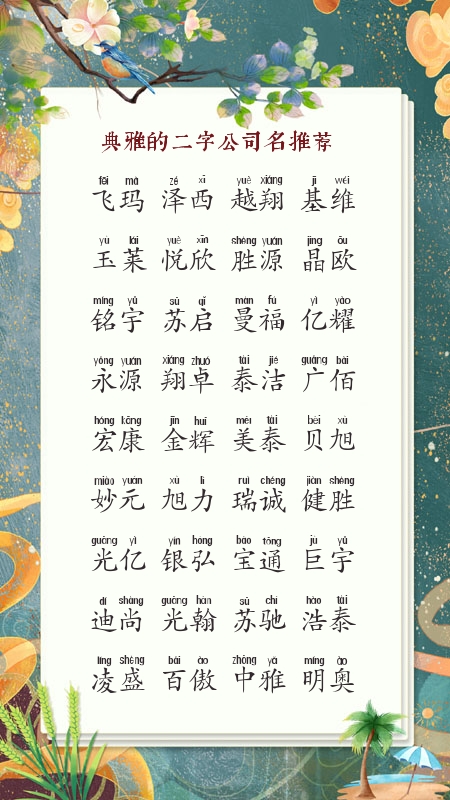 典雅的二字公司名推荐
fēi mǎ zé xī yuè xiáng jī wéi
飞玛 泽西 越翔 基维
yù lái yuè xīn shèng yuán jīng ōu
玉莱 悦欣 胜源 晶欧
míng yǔ sū qǐ màn fú yì yào
铭宇 苏启 曼福 亿耀
yǒng yuán xiáng zhuó tài jié guǎng bǎi
永源 翔卓 泰洁 广佰
hóng kāng jīn huī měi tài bèi xù
宏康 金辉 美泰 贝旭
miào yuán xù lì ruì chéng jiàn shèng
妙元 旭力 瑞诚 健胜
guāng yì yín hóng bǎo tōng jù yǔ
光亿 银弘 宝通 巨宇
dí shàng guāng hàn sū chí hào tài
迪尚 光翰 苏驰 浩泰
líng shèng bǎi ào zhōng yǎ míng ào
凌盛 百傲 中雅 明奥